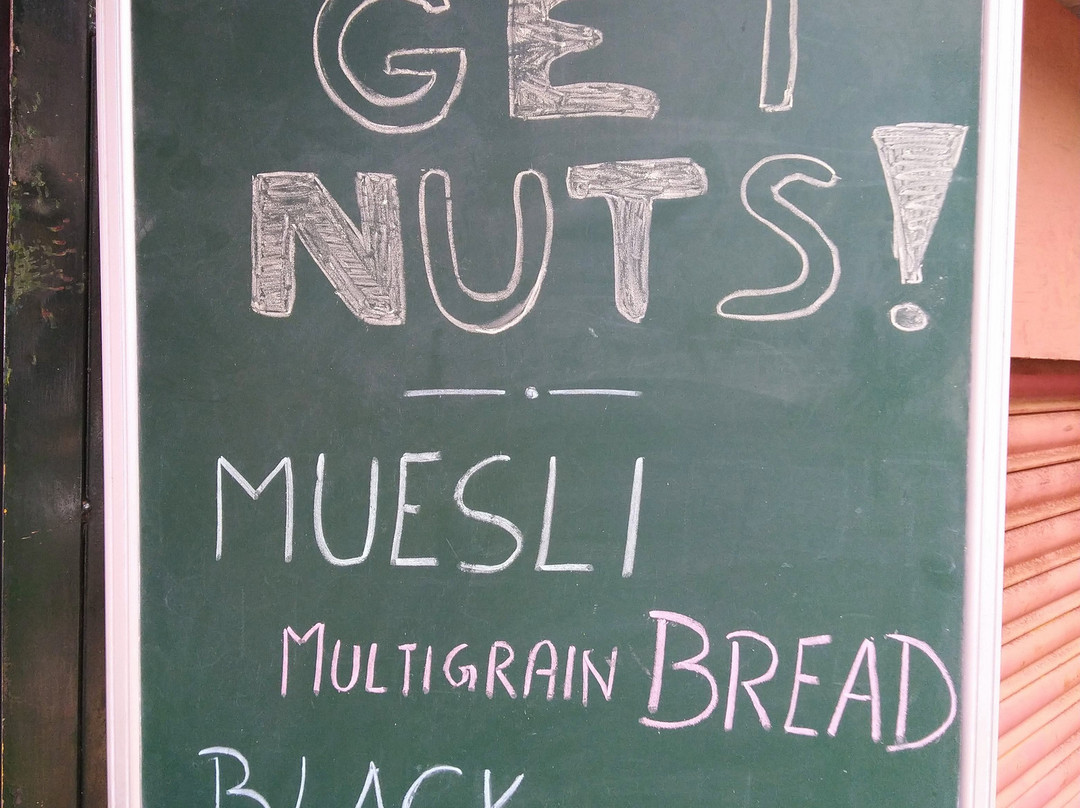 GET
NUTS!
MUESLI
MULTIGRAIN BREAD
BLACK